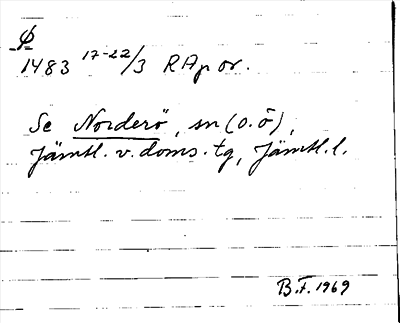 Ö
1483 17-22/3 RAp or.
Se Norderö, sn (o. ö),
Jämtl. v. doms. tg, Jämtl. l.
B.F. 1969